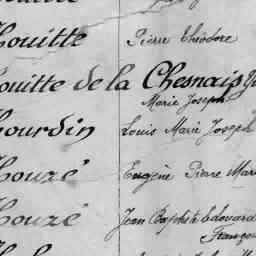 Houitte Pierre Théodore
Houitte de la Chesnais
Marie Joseph
Hourdin Louis Marie Joseph
Houzé Eugène Pierre Marie
Houzé Jean Baptiste Edouard
François